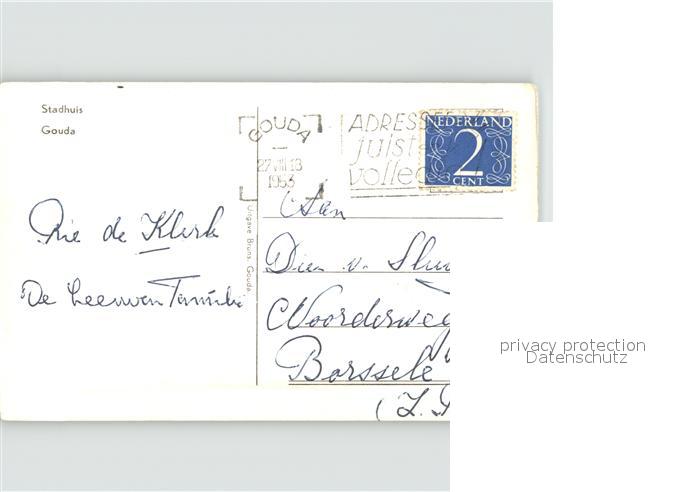 Stadhuis
Gouda
GOUDA
27 VIII 13
1953
ADRESSE
juist
volle
NEDERLAND
2
CENT
Uitgave Bruns. Gouda.
Rie de Klerk
De Leeuwen Familie
Aan
Dien v. Slui
Noorderweg
Borssele
(Z.
privacy protection
Datenschutz